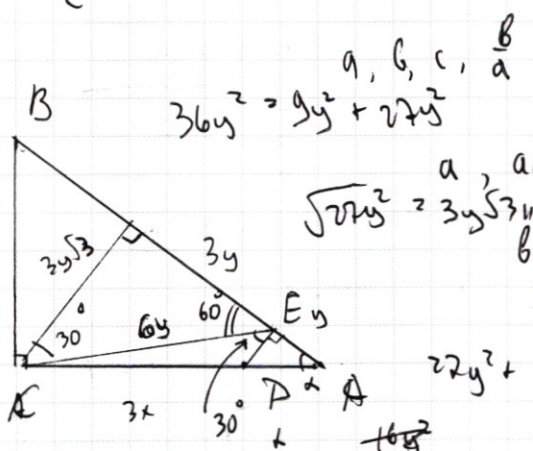 a, b, c, b/a
36y² = 9y² + 27y²
B
a, a
√27y² = 3y√3
b
3y√3
3y
60°
E y
30°
6y
27y² +
C
3x
30°
D
α
A
x